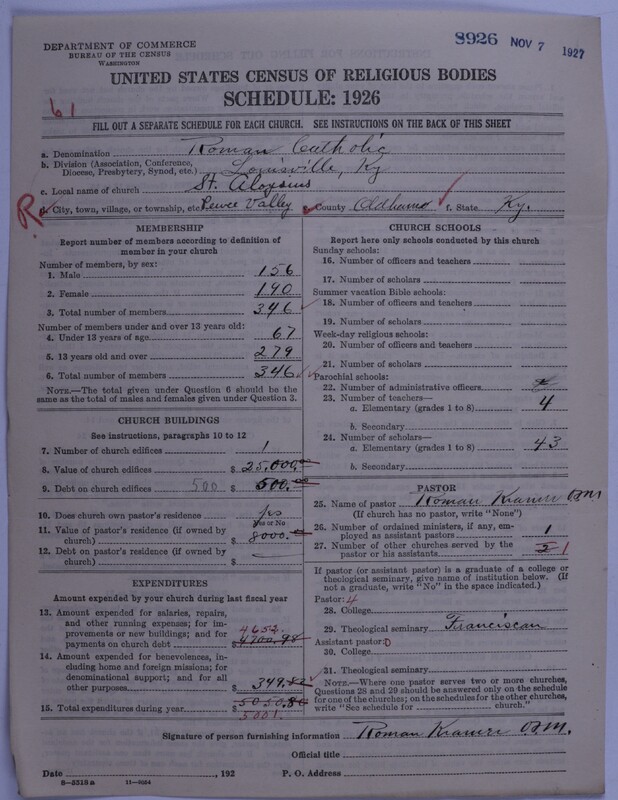 8926 NOV 7 1927
DEPARTMENT OF COMMERCE
BUREAU OF THE CENSUS
WASHINGTON
UNITED STATES CENSUS OF RELIGIOUS BODIES
SCHEDULE: 1926
61
FILL OUT A SEPARATE SCHEDULE FOR EACH CHURCH. SEE INSTRUCTIONS ON THE BACK OF THIS SHEET
a. Denomination Roman Catholic
b. Division (Association, Conference, Diocese, Presbytery, Synod, etc.) Louisville, Ky
c. Local name of church St. Aloysius
R
d. City, town, village, or township, etc. Pewee Valley e. County Oldham f. State Ky.
MEMBERSHIP
Report number of members according to definition of
member in your church
Number of members, by sex:
1. Male 156
2. Female 190
3. Total number of members 346
Number of members under and over 13 years old:
4. Under 13 years of age 67
5. 13 years old and over 279
6. Total number of members 346
NOTE.—The total given under Question 6 should be
same as the total of males and females given under Question 3.
CHURCH BUILDINGS
See instructions, paragraphs 10 to 12
7. Number of church edifices 1
8. Value of church edifices $ 25,000.
9. Debt on church edifices 500 $ 500.
10. Does church own pastor's residence? yes
Yes or No
11. Value of pastor's residence (if owned by
church) $ 8000.
12. Debt on pastor's residence (if owned by
church) $
EXPENDITURES
Amount expended by your church during last fiscal year
13. Amount expended for salaries, repairs,
and other running expenses; for im-
provements or new buildings; and for 4652
payments on church debt $ 4700.98
14. Amount expended for benevolences, in-
cluding home and foreign missions; for
denominational support; and for all
other purposes $ 349.82
15. Total expenditures during year $ 5050.80
5001
CHURCH SCHOOLS
Report here only schools conducted by this church
Sunday schools:
16. Number of officers and teachers
17. Number of scholars
Summer vacation Bible schools:
18. Number of officers and teachers
19. Number of scholars
Week-day religious schools:
20. Number of officers and teachers
21. Number of scholars
Parochial schools:
22. Number of administrative officers
23. Number of teachers—
a. Elementary (grades 1 to 8) 4
b. Secondary
24. Number of scholars—
a. Elementary (grades 1 to 8) 43
b. Secondary
PASTOR
25. Name of pastor Roman Kramer O.M.
(If church has no pastor, write "None")
26. Number of ordained ministers, if any, em-
ployed as assistant pastors 1
27. Number of other churches served by the
pastor or his assistants 5 1
If pastor (or assistant pastor) is a graduate of a college or
theological seminary, give name of institution below. (If
not a graduate, write "No" in the space indicated.)
Pastor: 4
28. College
29. Theological seminary Franciscan
Assistant pastor: 0
30. College
31. Theological seminary
NOTE.—Where one pastor serves two or more churches,
Questions 28 and 29 should be answered only on the schedule
for one of the churches; on the schedules for the other churches,
write "See schedule for church."
Signature of person furnishing information Roman Kramer O.M.
Official title
Date , 192 P. O. Address
8-5518a 11-9554